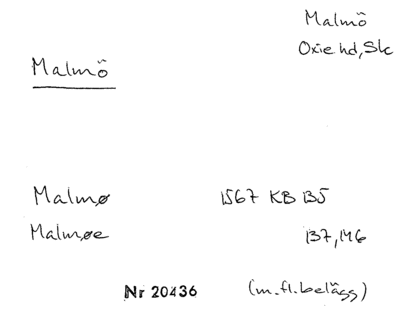 Malmö
Oxie hd, Sk
Malmö
Malmø 1567 KB 135
Malmøe 137, 146
Nr 20436 (m.fl.belägg)